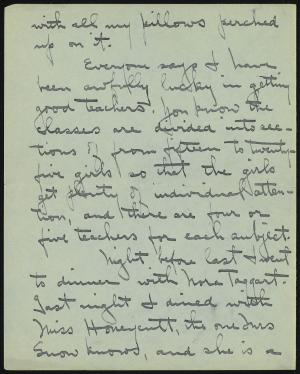 with all my pillows perched
up on it.
Everyone says I have
been awfully lucky in getting
good teachers. You know the
classes are divided into sec-
tions of from fifteen to twenty-
five girls so that the girls
get plenty of individual atten-
tion, and there are four or
five teachers for each subject.
Night before last I went
to dinner with Nora Taggart.
Last night I dined with
Miss Honeycutt, the one Mrs
Snow knows, and she is a